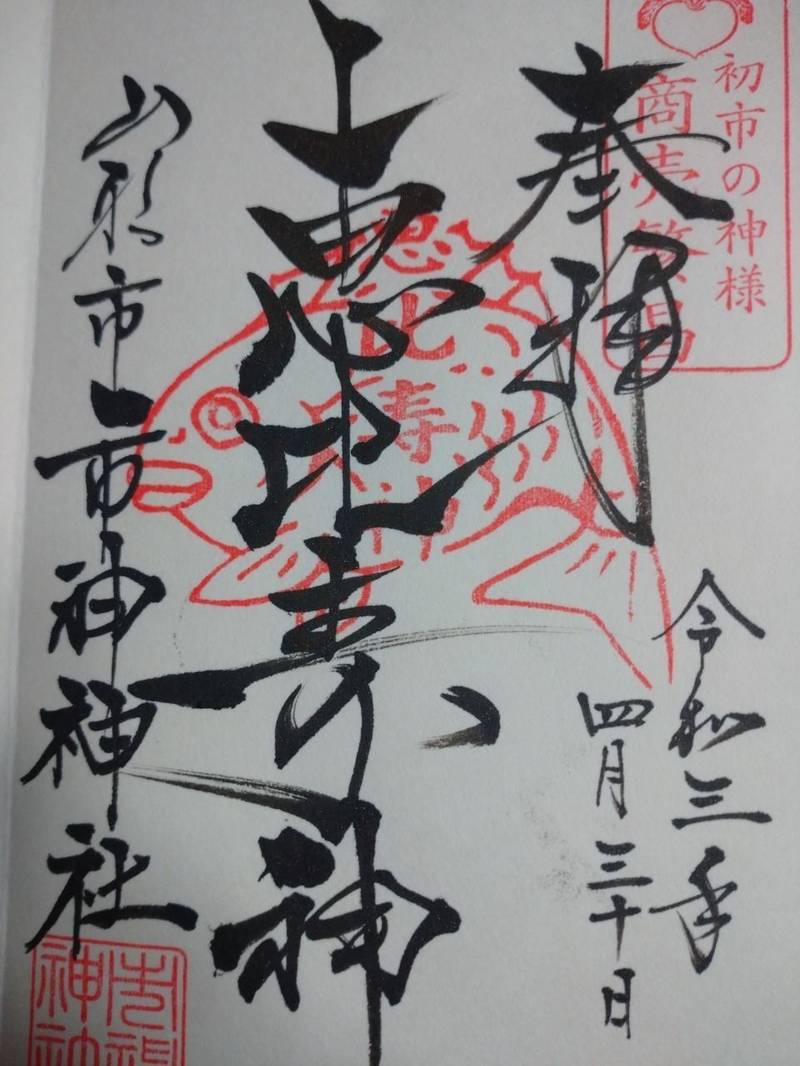 初市の神様
商売繁昌
奉拝
令和三年
四月三十日
恵比寿神
恵比寿
山形市市神神社